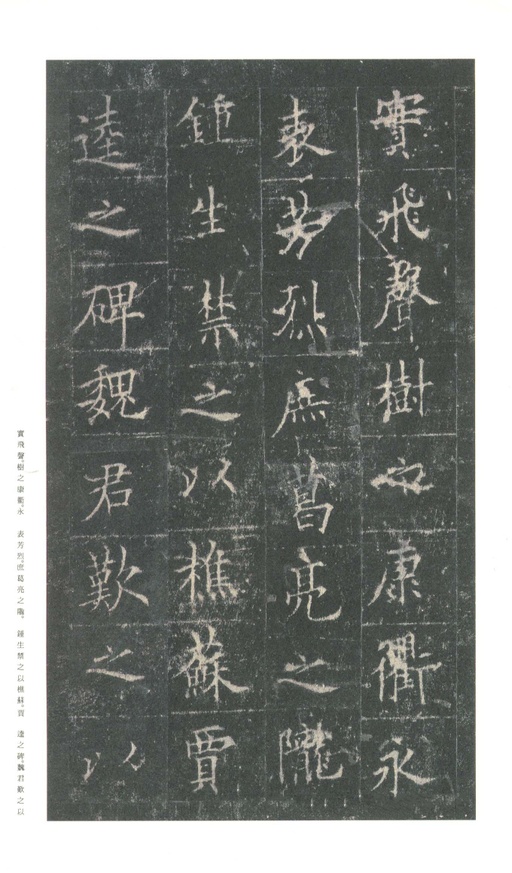 實飛聲樹之康衢永
表芳烈庶葛亮之隴
鍾生禁之以樵蘇賈
逵之碑魏君歎之以
實飛聲。樹之康衢。永 表芳烈。庶葛亮之隴。 鍾生禁之以樵蘇。賈 逵之碑。魏君歎之以